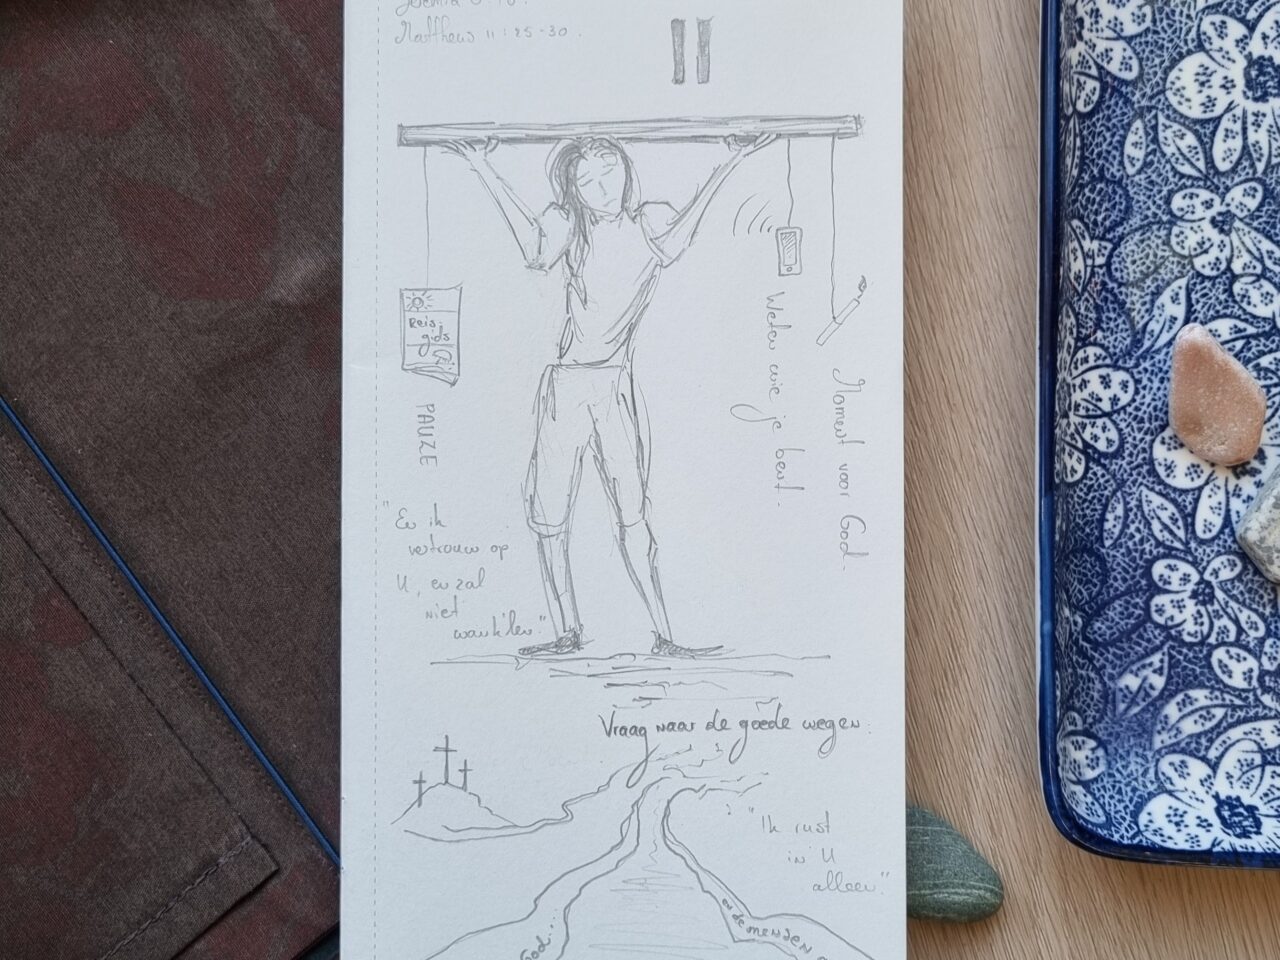 Mattheus 11:25-30.
Reis
gids
PAUZE
Weten wie je bent.
Moment voor God.
"En ik
vertrouw op
U, en zal
niet
wank'len."
Vraag naar de goede wegen.
"Ik rust
in U
alleen."
God...
en de mensen